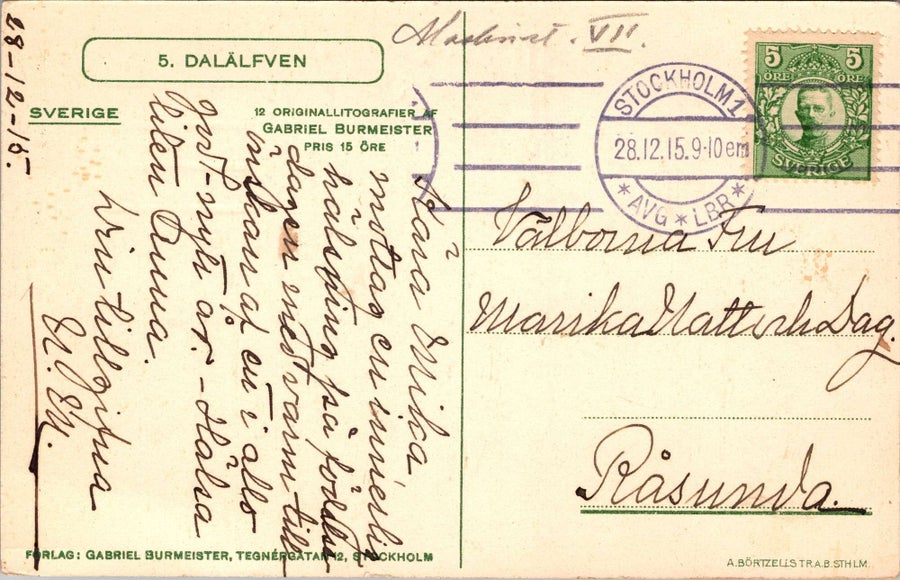 28-12-15.
Maskinist. VII.
5. DALÄLFVEN
SVERIGE
12 ORIGINALLITOGRAFIER AF
GABRIEL BURMEISTER
PRIS 15 ÖRE
STOCKHOLM 1
28.12.15.9-10 em
* AVG * LBR *
5 5
ÖRE ÖRE
SVERIGE
Kära Mika
mottag en innerlig
hälsning på födelse
dagen med varm till
önskan af en i allo
godt-nytt år. - Hälsa
liten Anna.
Din tillgifna
Välborna Fru
Marika Natt och Dag.
Råsunda.
FÖRLAG: GABRIEL BURMEISTER, TEGNÉRGATAN 12, STOCKHOLM
A. BÖRTZELLS TR.A.B. STHLM.